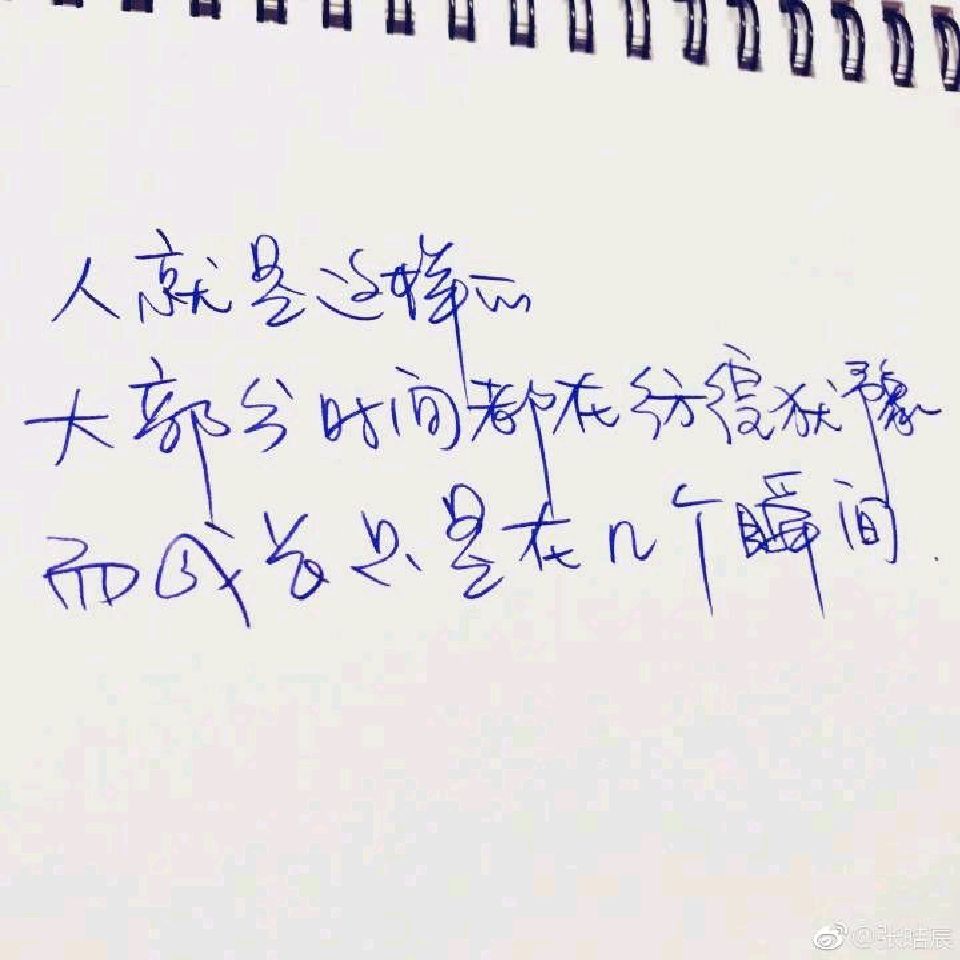 人就是这样
大部分时间都在彷徨犹豫
而成长只是在几个瞬间.
@张皓宸